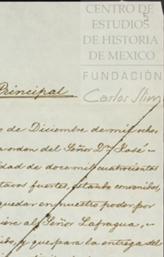 CENTRO DE
ESTUDIOS
DE HISTORIA
DE MEXICO
5
FUNDACIÓN
Carlos Slim
Principal
o de Diciembre de mil ocho
a orden del Señor Dn. José
idad de doce mil cuatrocientos
tacos fuertes, estando convenidos
quedar en nuestro poder por
al Señor Lafragua,
y que para la entrega del